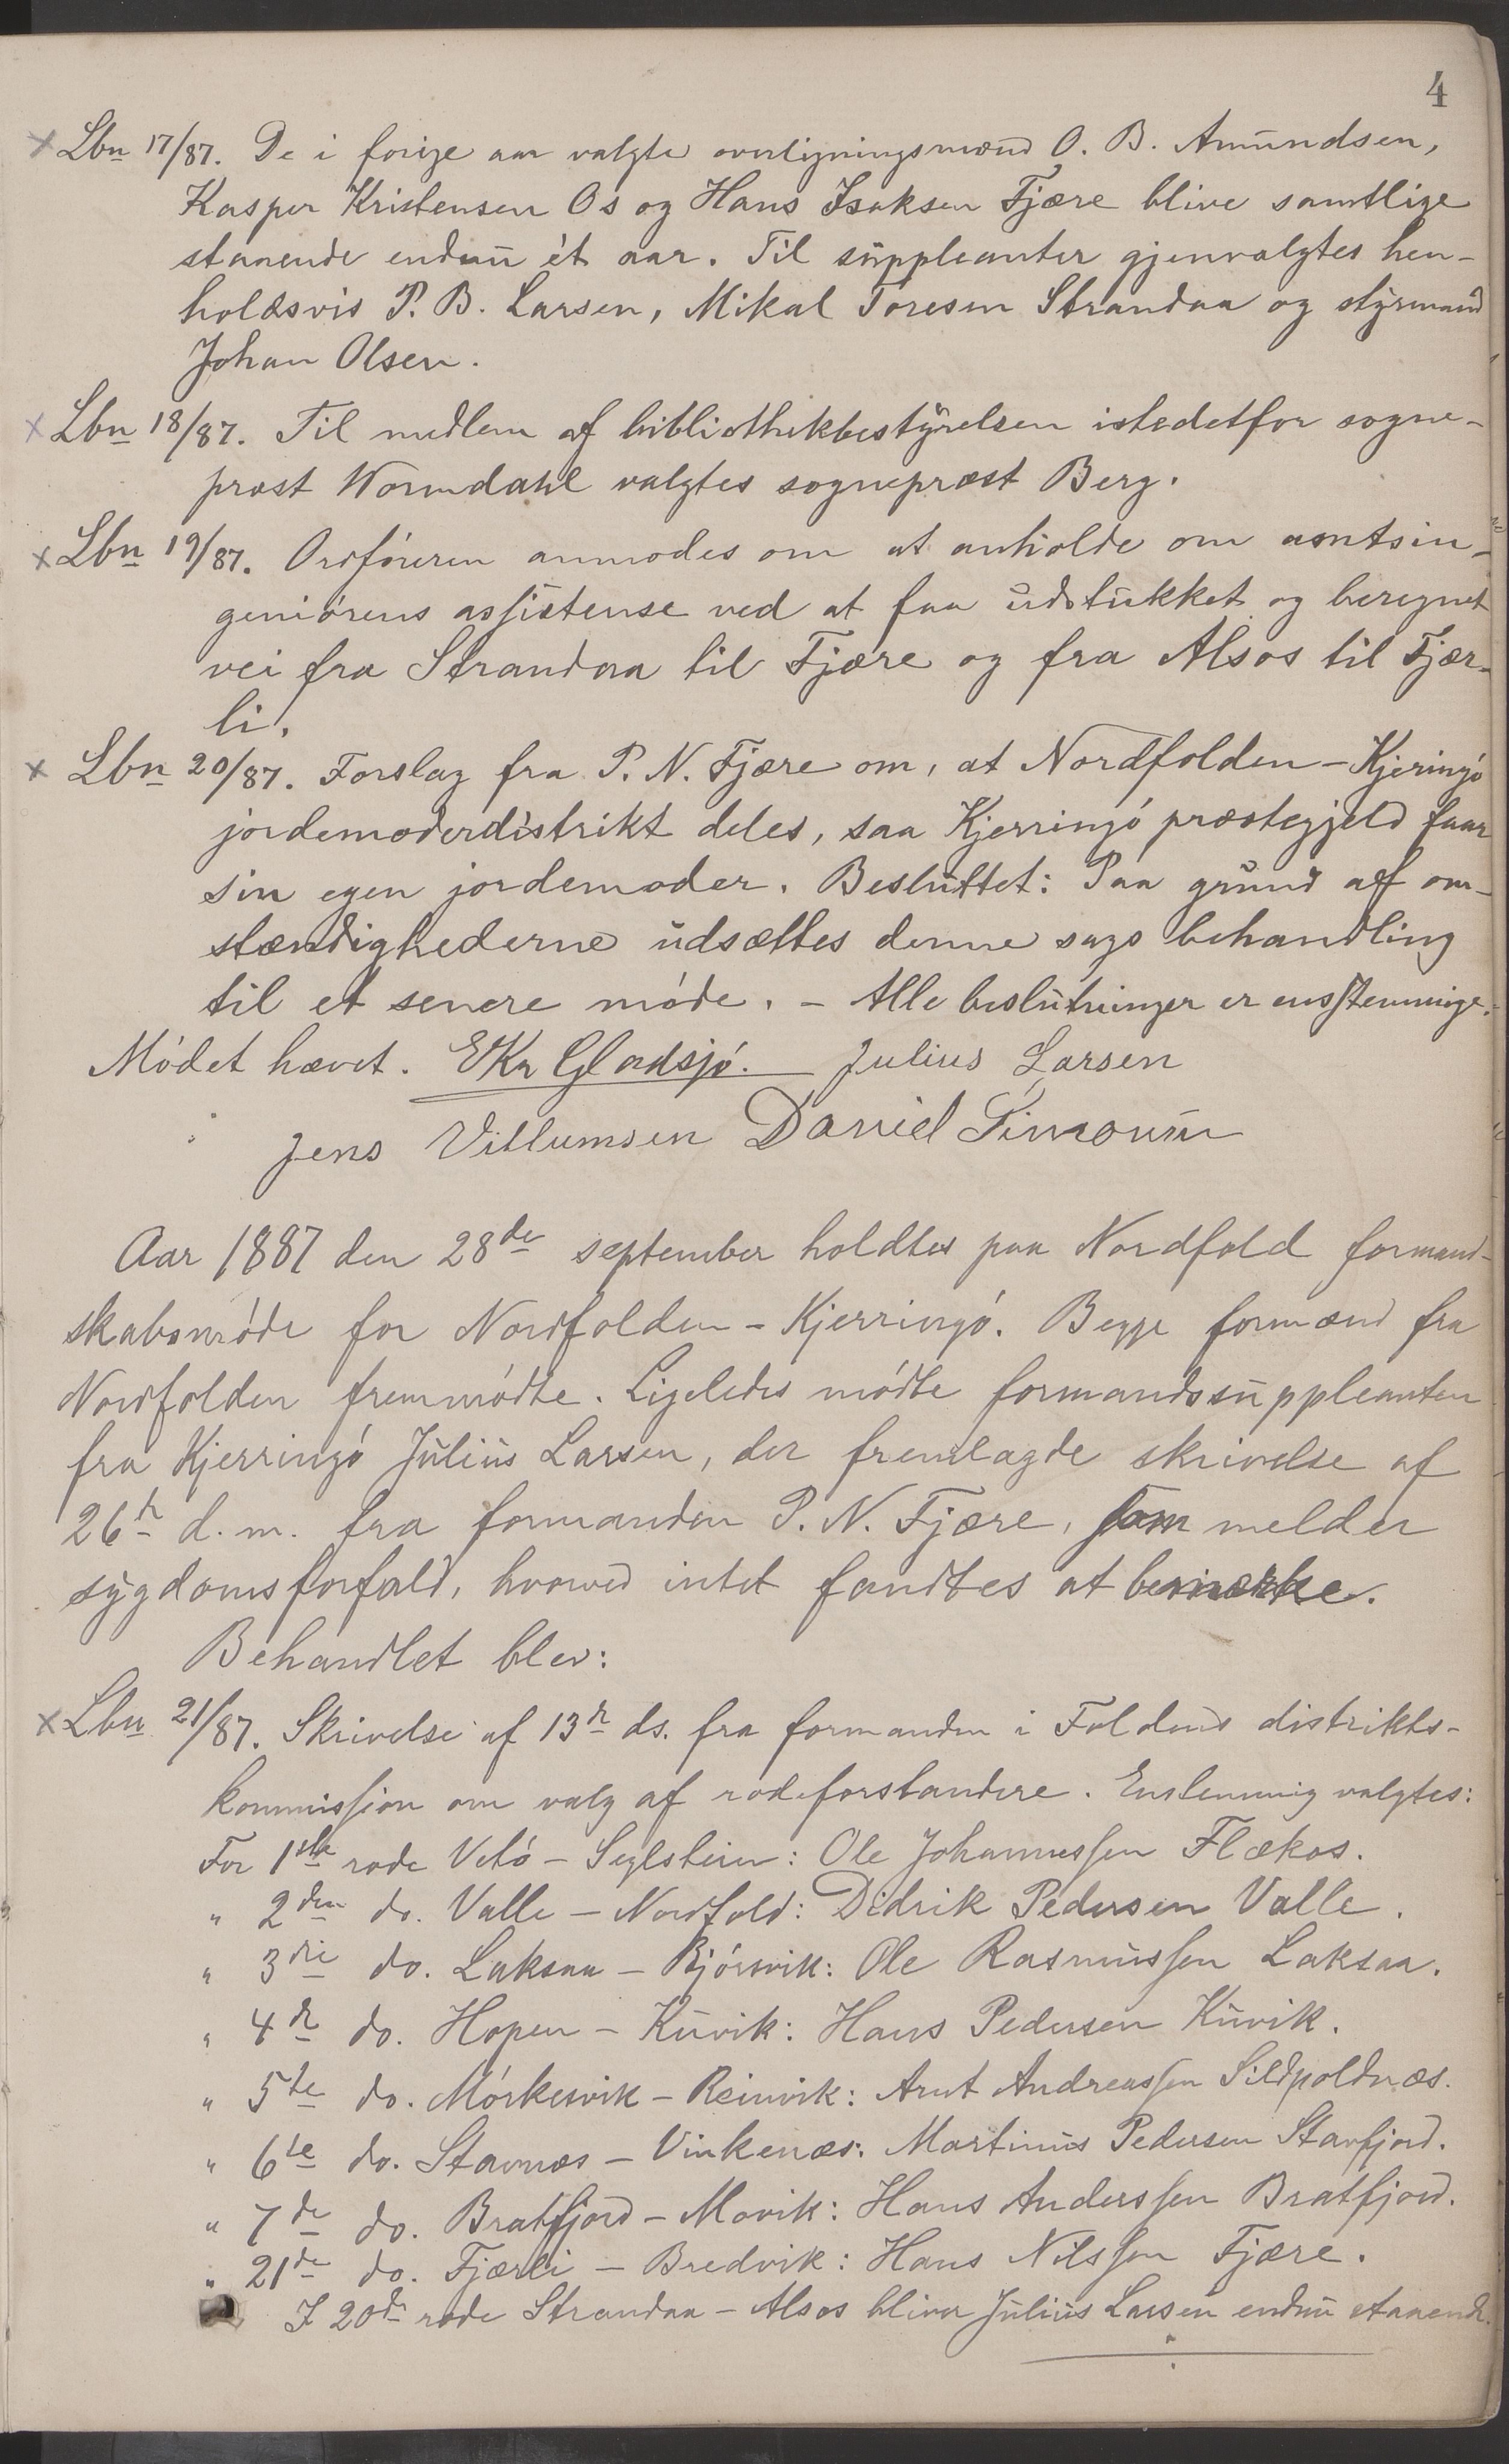 4
x Lbn 17/87. De i forige aar valgte overligningsmænd O. B. Amundsen,
Kasper Kristensen Os og Hans Isaksen Fjære blive samtlige
staaende endnu ét aar. Til suppleanter gjenvalgtes hen-
holdsvis P. B. Larsen, Mikal Toresen Strandaa og styrmand
Johan Olsen.
x Lbn 18/87. Til medlem af bibliothekbestyrelsen istedetfor sogne-
prest Wormdahl valgtes sogneprest Berg.
x Lbn 19/87. Ordføreren anmodes om at anholde om amtsin-
geniørens assistense ved at faa udstukket og beregnet
vei fra Strandaa til Fjære og fra Alsos til Fjær-
li.
x Lbn 20/87. Forslag fra P. N. Fjære om, at Nordfolden-Kjeringø
jordemoderdistrikt deles, saa Kjerringø præstegjeld faar
sin egen jordemoder. Besluttet: Paa grund af om-
stændighederne udsættes denne sags behandling
til et senere møde. - Alle beslutninger er ensstemmige.
Mødet hævet. EKr Gladsjø. Julius Larsen
Jens Villumsen Daniel Simonsen
Aar 1887 den 28de september holdtes paa Nordfold formand-
skabsmøde for Nordfolden-Kjerringø. Begge formænd fra
Nordfolden fremmødte. Ligeledes mødte formandssuppleanten
fra Kjerringø Julius Larsen, der fremlagde skrivelse af
26de d. m. fra formanden P. N. Fjære, som melder
sygdomsforfald, hvorved intet fandtes at bemærke.
Behandlet blev:
x Lbn 21/87. Skrivelse af 13de ds. fra formanden i Foldens distrikts-
kommission om valg af rodeforstandere. Enstemmig valgtes:
For 1ste rode Vetø - Seglstein: Ole Johannessen Flækos.
" 2den do. Valle - Nordfold: Didrik Pedersen Valle.
" 3die do. Laksaa - Bjørsvik: Ole Rasmussen Laksaa.
" 4de do. Hopen - Kuvik: Hans Pedersen Kuvik.
" 5te do. Mørkesvik - Reinvik: Arnt Andreassen Sildpoldnæs.
" 6te do. Stavnæs - Vinkenæs: Martinus Pedersen Stavfjord.
" 7de do. Bratfjord - Movik: Hans Anderssen Bratfjord.
" 21de do. Fjærli - Bredvik: Hans Nilssen Fjære.
I 20de rode Strandaa - Alsos bliver Julius Larsen endnu staaende.